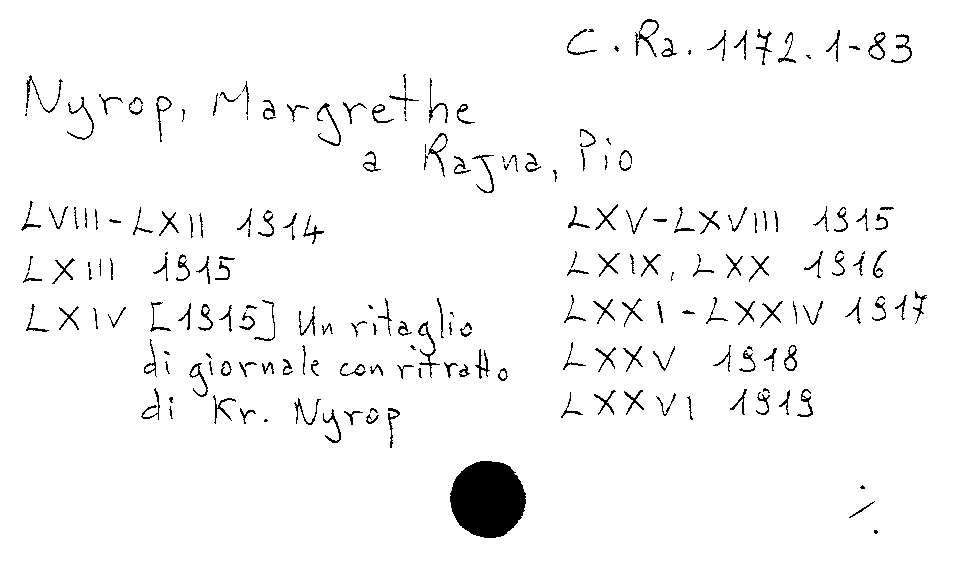 C. Ra. 1172. 1-83
Nyrop, Margrethe
a Rajna, Pio
LVIII-LXII 1914
LXIII 1915
LXIV [1915] Un ritaglio
di giornale con ritratto
di Kr. Nyrop
LXV-LXVIII 1915
LXIX, LXX 1916
LXXI-LXXIV 1917
LXXV 1918
LXXVI 1919
./.